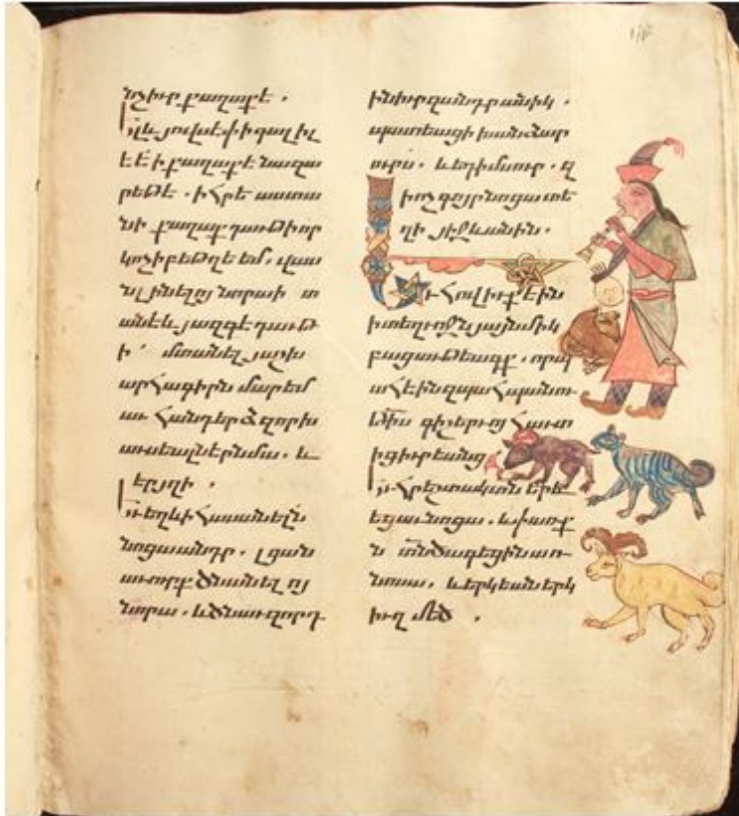 նչիւր քաղաքէ .
Ել և յովսէփ ի գալիլ
եէ ի քաղաքէ նազա
րեթէ . ի հրէաստա
նի քաղաք դաւթի որ
կոչի բեթղեէմ . վաս
ն լինելոյ նորա ի տ
անէ և յազգէ դաւթ
ի ՝ մտանել յաշխ
արհագիրն մարեմ
աւ հանդերձ զոր խ
աւսեալն էր նմա . և
էր յղի .
Եւ եղև ի հասանելն
նոցա անդր . լցան
աւուրք ծնանելոյ
նորա . և ծնաւ զորդ
ին իւր զանդրանիկ .
պատեաց ի խանձար
ուրս . և եդ ի մսուր . զ
ի ոչ գոյր նոցա տե
ղի յիջևանին .
Եւ հովիւք էին
ի տեղւոջն յայնմիկ
բացաւթեագք . որք պ
ահէին զպահպանու
թիւնս գիշերոյ հաւտ
ից իւրեանց
Եւ հրեշտակ տն երև
եցաւ նոցա . և փառք
տն ծագեցին առ
նոսա . և երկեան երկ
իւղ մեծ .